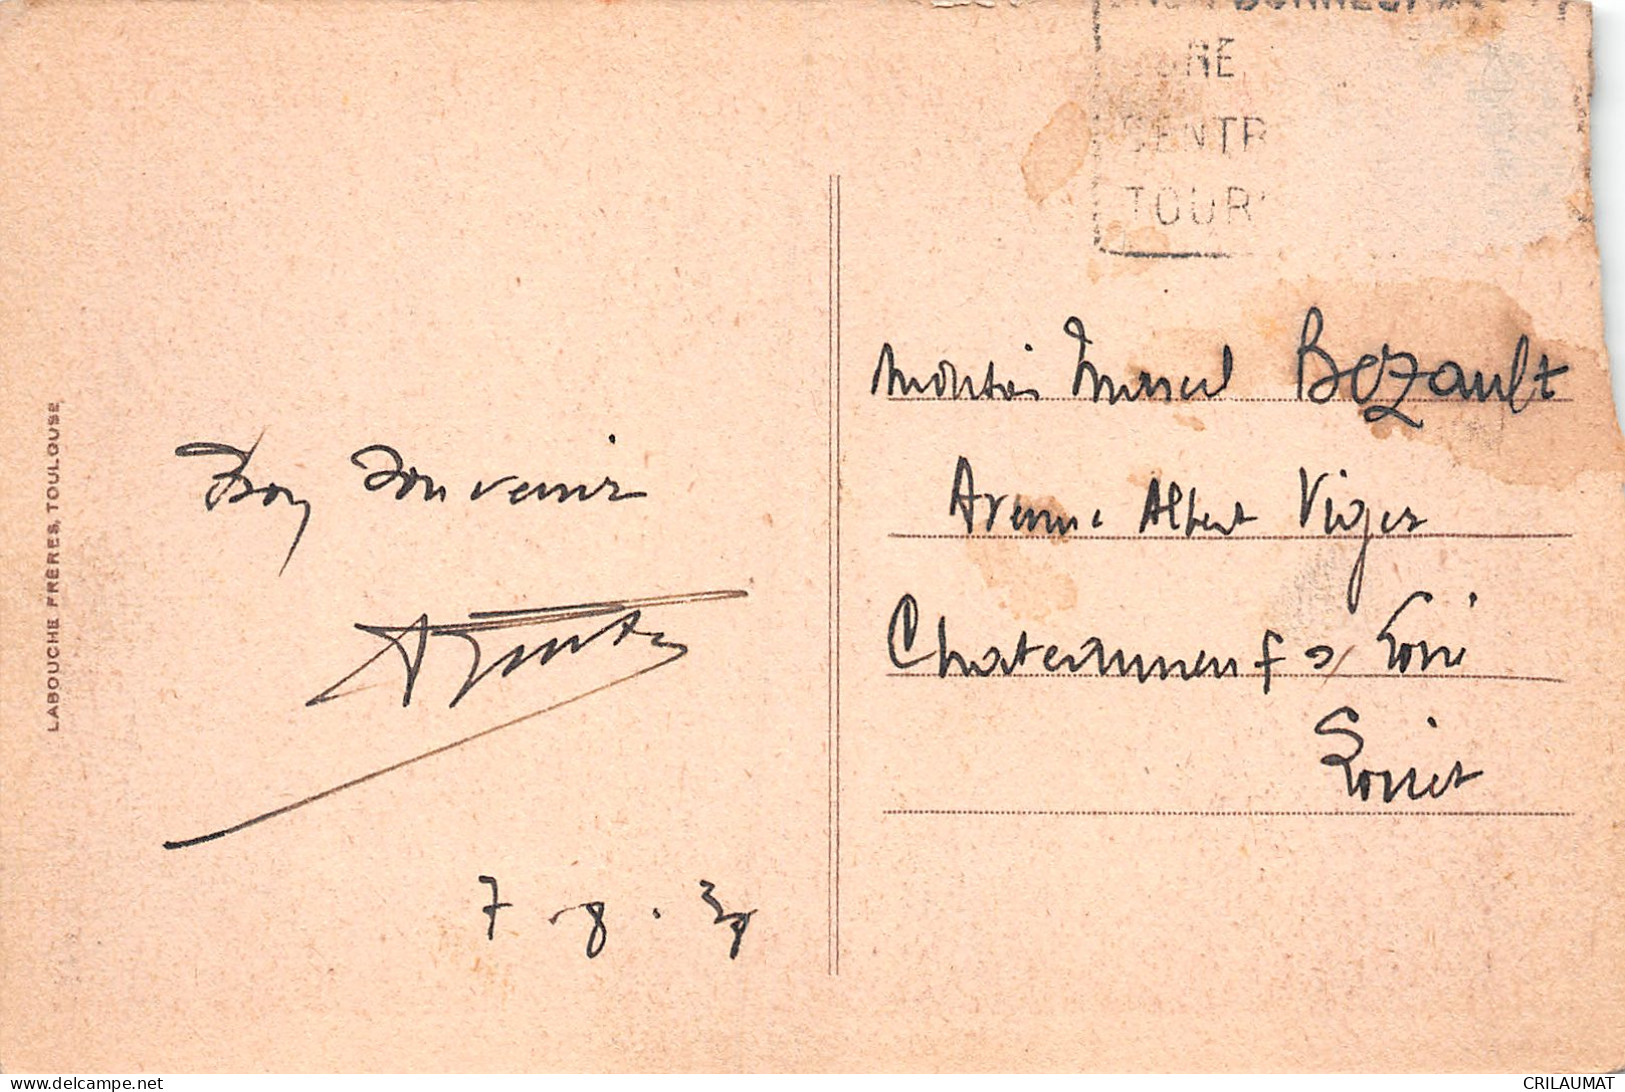 LABOUCHE FRÈRES, TOULOUSE
Bon souvenir
7 . 8 .
CENTR
TOUR
Monsieur Marcel Bezault
Avenue Albert Viger
Chateauneuf s/ Loire
Loiret
www.delcampe.net
CRILAUMAT